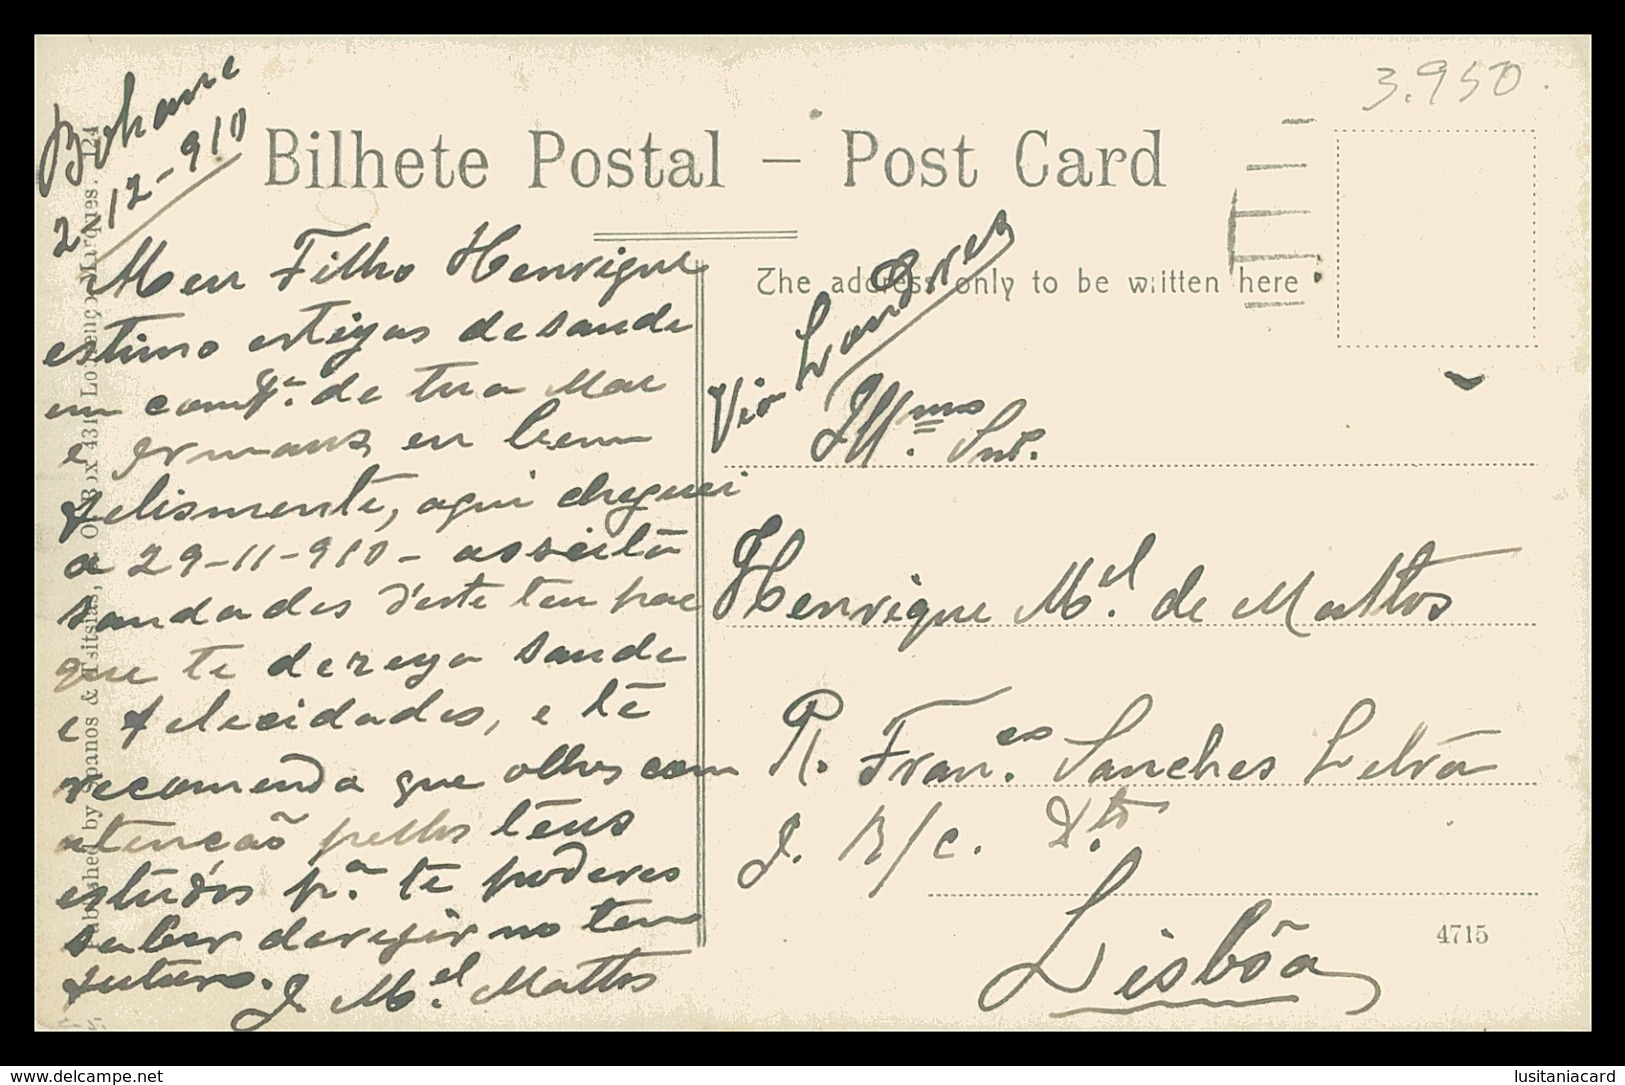 3.950
2-12-910
Bilhete Postal – Post Card
The address only to be written here
Meu Filho Henrique
estimo estejas de saude
em comp.ª de tua Mae
e Irmans eu bem
felismente, aqui cheguei
a 29-11-910 - asseita
saudades d'este teu pae
que te dezeja saude
e felecidades, e te
recomenda que olhes com
atencão pellos teus
estudos p.ª te poderes
saber deregir no teu
futuro.
J. M.el Mattos
Via Londres
Ill.mo Snr.
Henrique M.el de Mattos
R. Fran.co Sanches Letra
J. R/c. D.to
Lisbôa
4715
Published by Spanos & Tsitsias, P. O. Box 431 Lourenço Marques. 124
www.delcampe.net
lusitaniacard